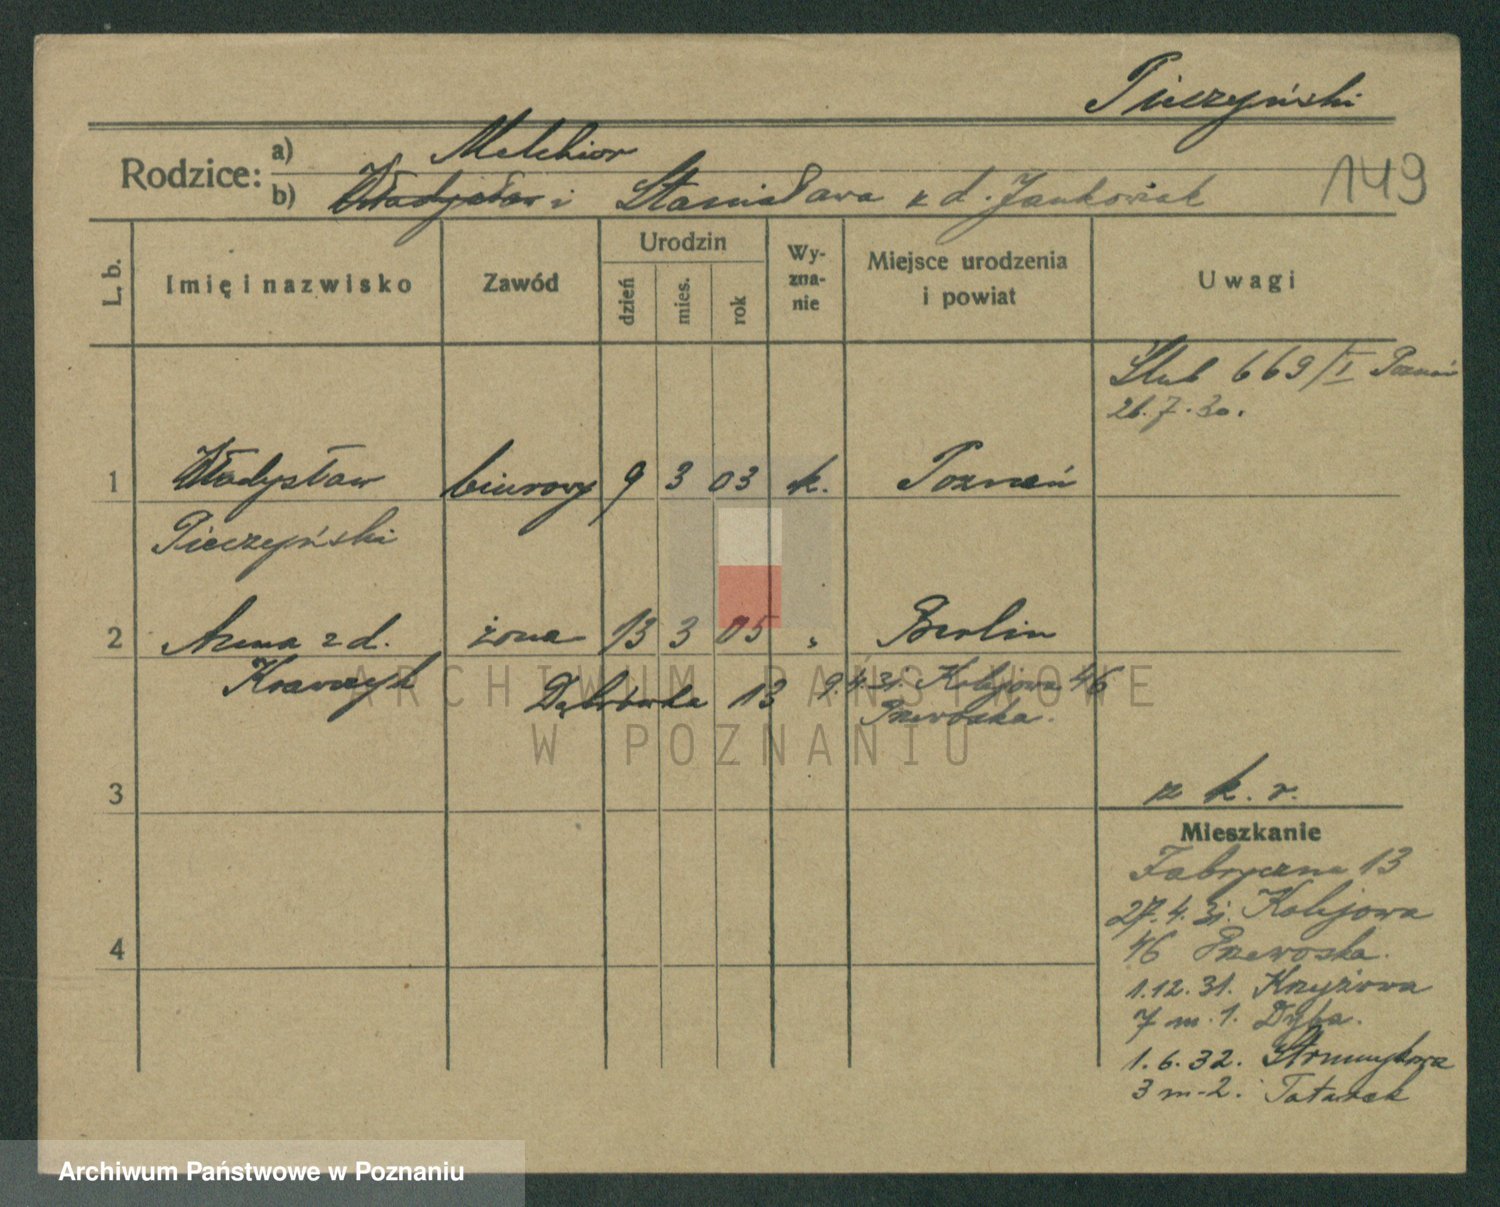 Pieczyński
Rodzice: a) Melchior
b) Władysław i Stanisława z d. Jankowiak
149
L. b. Imię i nazwisko Zawód Urodzin dzień mies. rok Wy-zna-nie Miejsce urodzenia i powiat Uwagi
Ślub 669/I Poznań
26.7.30.
1 Władysław biurowy 9 3 03 k. Poznań
Pieczyński
2 Anna z d. żona 13 3 05 " Berlin
Krawczyk Dąbrówka 13 9.4.31. Kolejowa 46
Przewoska.
ARCHIWUM PAŃSTWOWE
W POZNANIU
3 z k. r.
Mieszkanie
Fabryczna 13
27.4.31. Kolejowa
4 46 Przewoska.
1.12.31. Krzyżowa
7 m. 1. Dyba.
1.6.32. Strumykowa
3 m-2. Tatarek
Archiwum Państwowe w Poznaniu